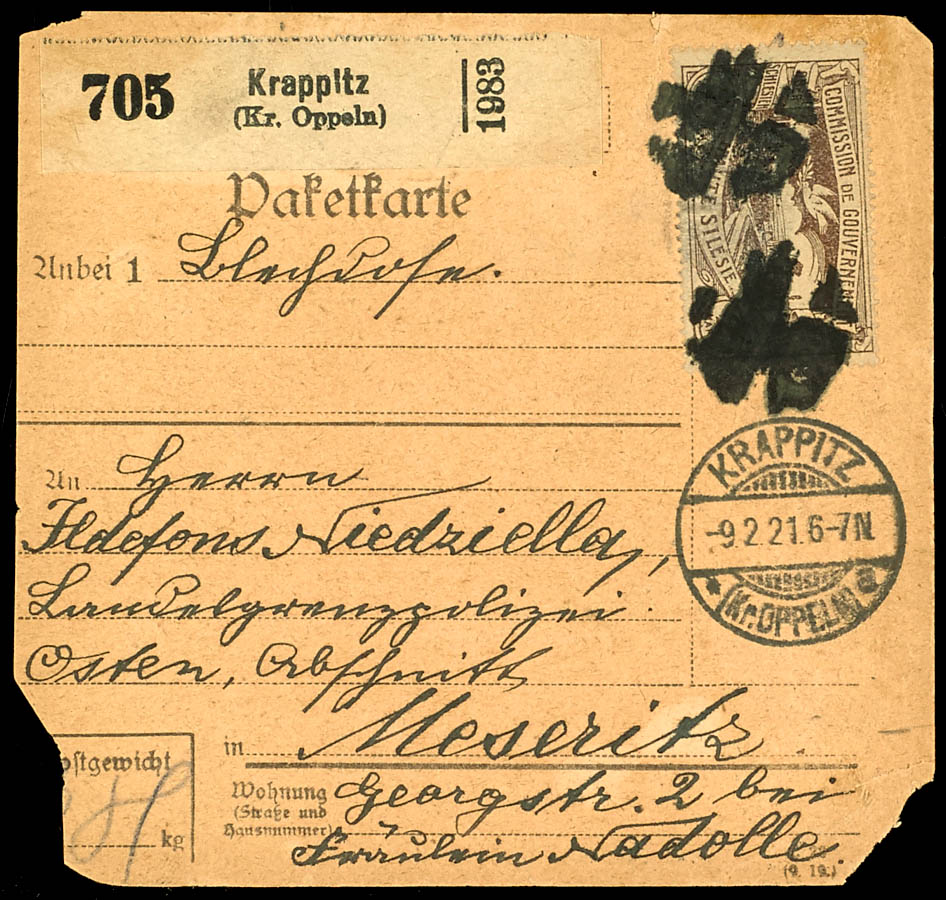 705
Krappitz
(Kr. Oppeln)
1983
Paketkarte
Anbei 1 Blechdose.
COMMISSION DE GOUVERNEM
HAUTE SILESIE
An Herrn
Ildefons Niedziella,
Landesgrenzpolizei
Osten, Abschnitt
KRAPPITZ
-9.2.21.6-7N.
* (Kr. OPPELN) a
in Meseritz
Wohnung Georgstr. 2 bei
(Straße und
Hausnummer)
Fräulein Nadolle.
stgewicht
kg
(9. 19.)